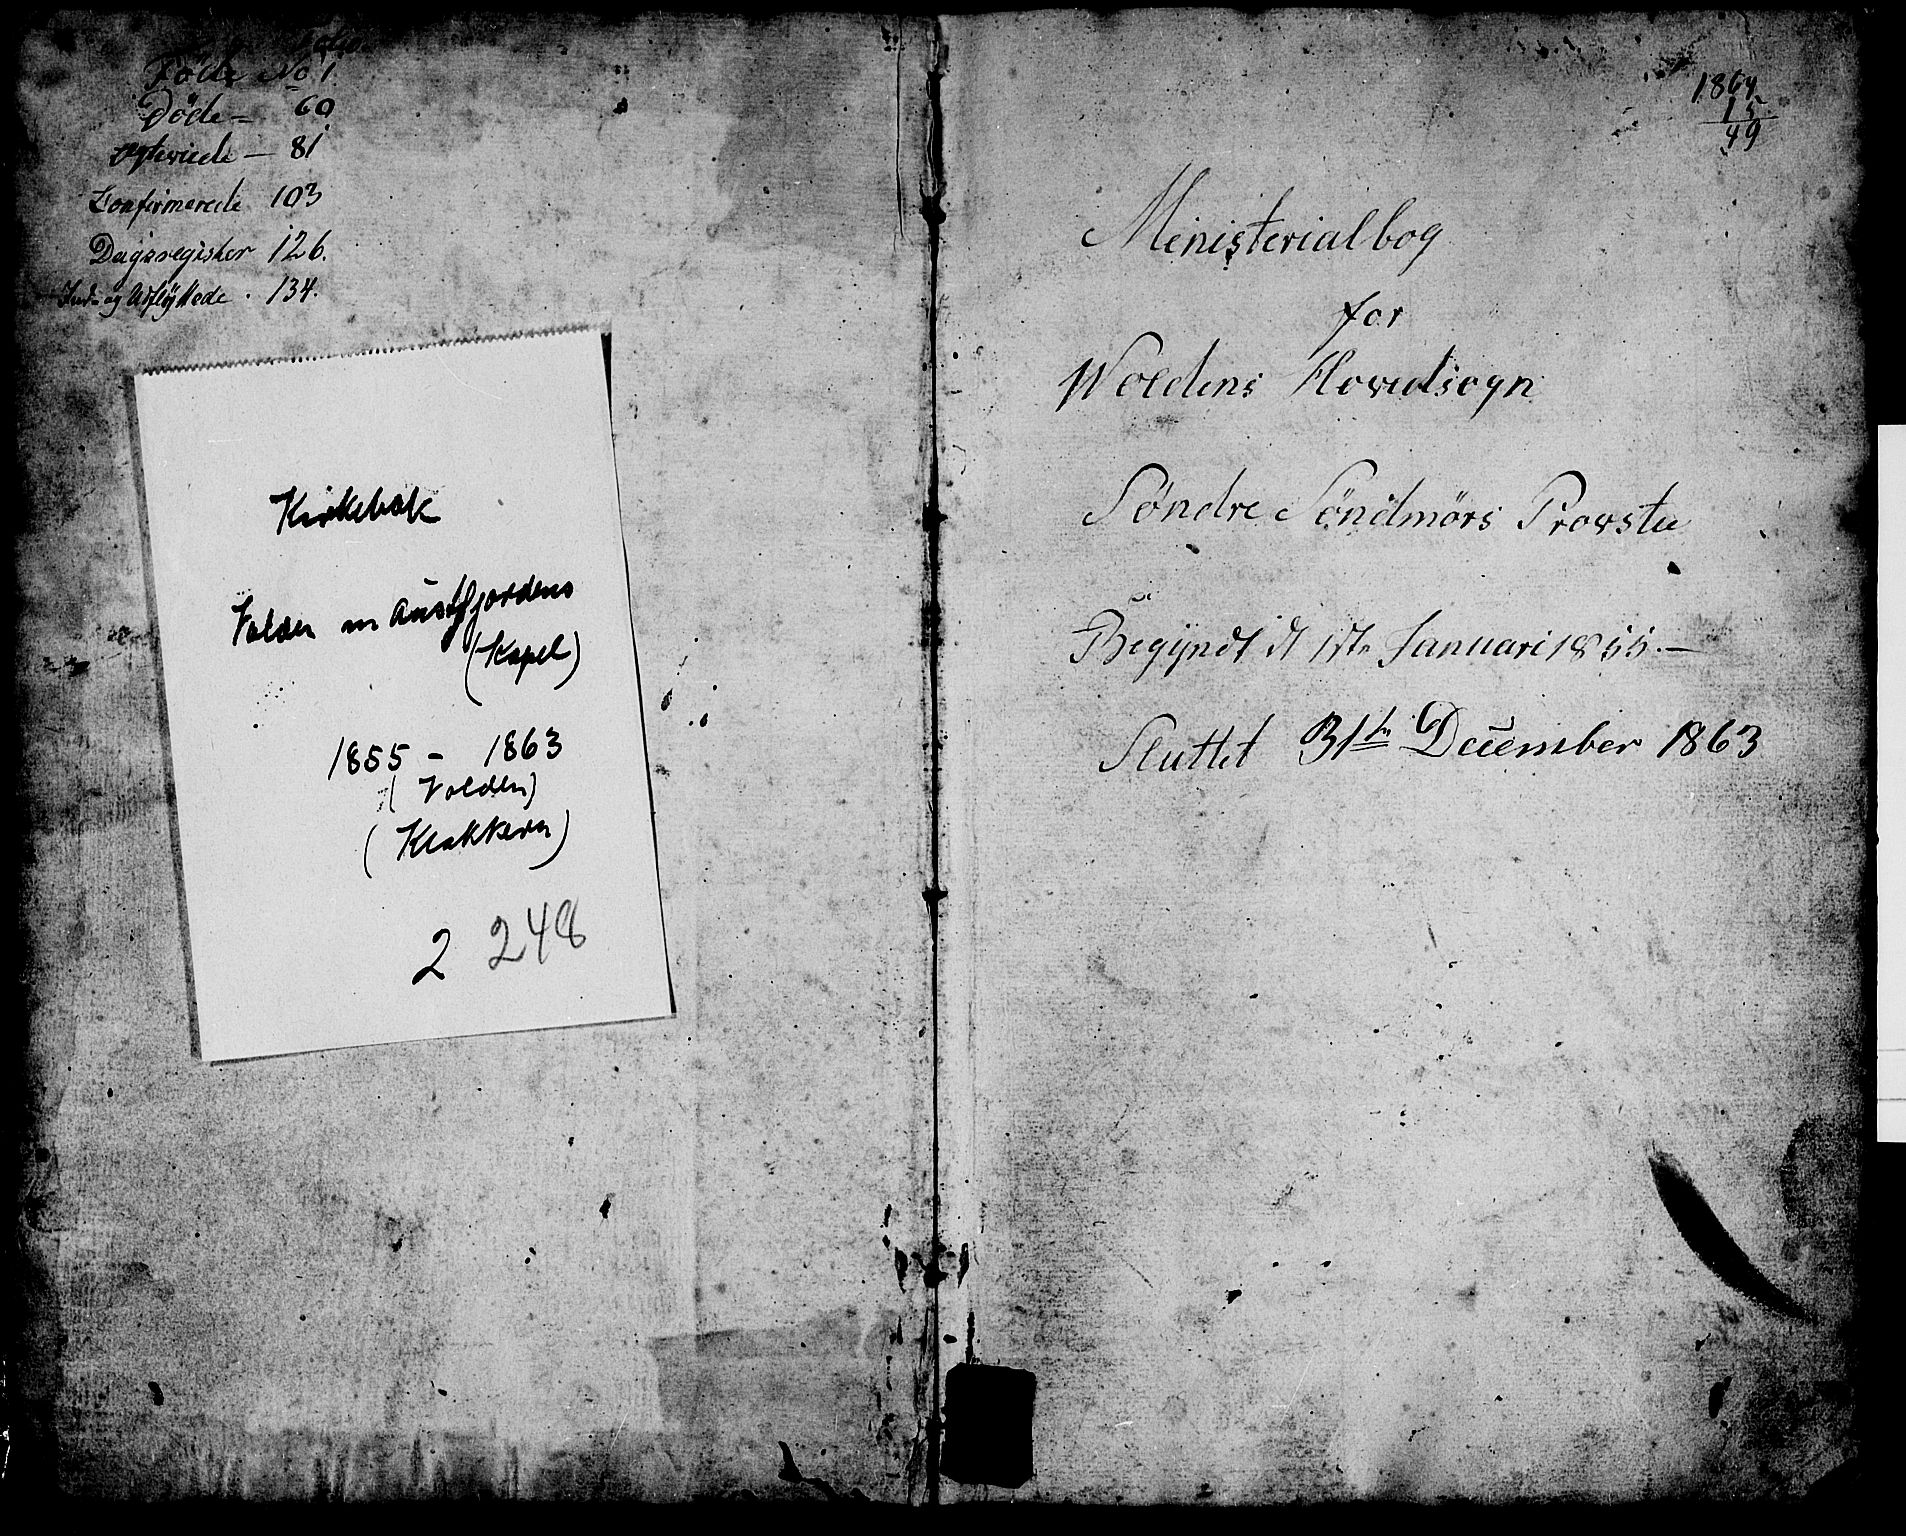 Föde No 1.
Döde = 60
Egteviede — 81
Confirmerede 103
Dagsregister 126.
Ind- og Udflyttede . 134.
Kirkebok
Volden m Austfjordens
(Kapel)
1855 - 1863
(Volden)
(Klokkern)
2 248
1864
15
49
Ministerialbog
for
Woldens Hovedsogn
Søndre Söndmörs Provstie
Begÿndt d 1ste Januari 1855. —
Sluttet 31te December 1863